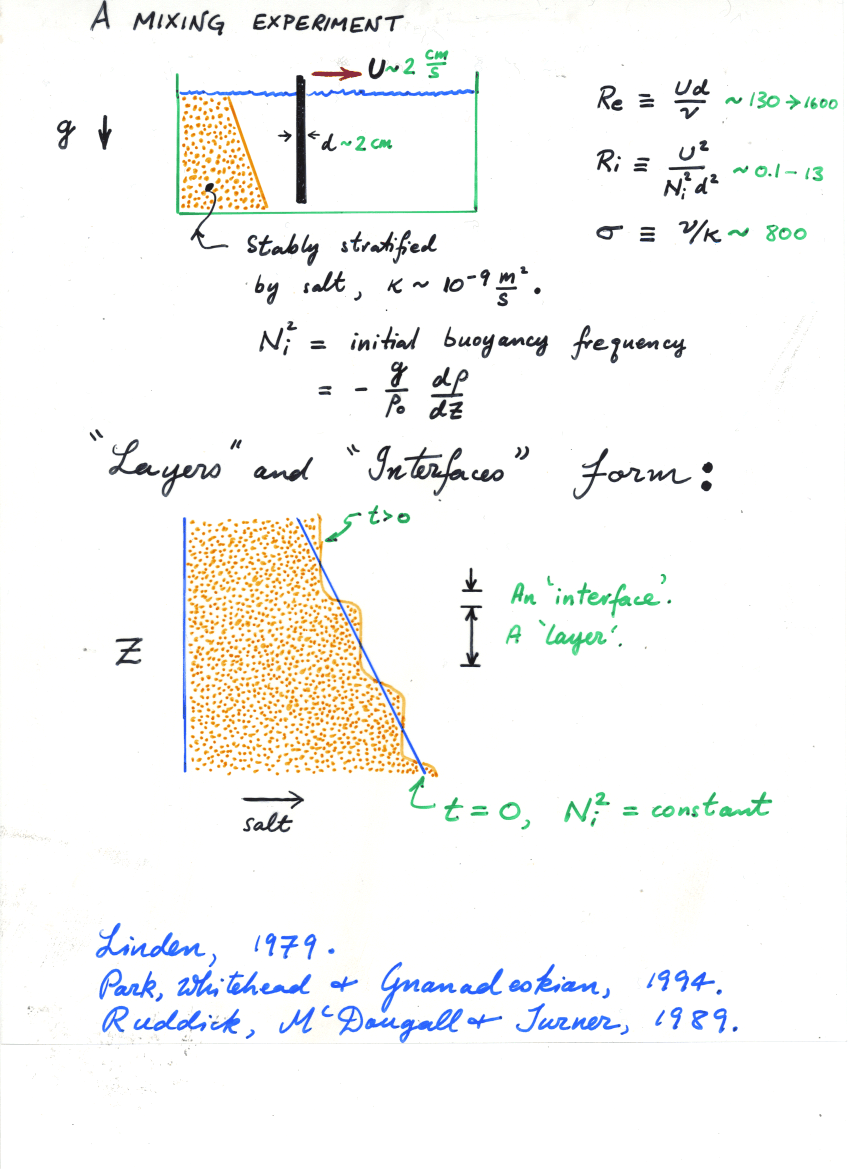 A MIXING EXPERIMENT
U ~ 2 cm/s
g ↓
d ~ 2 cm
Re ≡ Ud/ν ~ 130 → 1600
Ri ≡ U²/Nᵢ²d² ~ 0.1 – 13
σ ≡ ν/κ ~ 800
Stably stratified
by salt, κ ~ 10⁻⁹ m²/s.
Nᵢ² = initial buoyancy frequency
= - g/ρ₀ dρ/dz
"Layers" and "Interfaces" form:
t>0
An 'interface'.
A 'layer'.
Z
salt
t = 0, Nᵢ² = constant
Linden, 1979.
Park, Whitehead + Gnanadeskian, 1994.
Ruddick, McDougall + Turner, 1989.